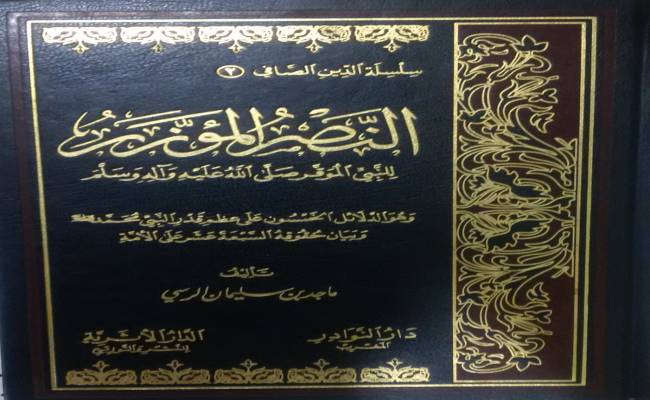 سلسلة الدين الصافي ٣
النَّصْرُ المُؤَزَّرُ
للنبي الموقر صلى الله عليه وآله وسلم
وهو الدلائل الخمسون على عظم قدر النبي محمد ﷺ
وبيان حقوقه السبعة عشر على الأمة
تأليف
ماجد بن سليمان الرسي
دار النوادر
المغرب
الدار الأثرية
للنشر والتوزيع